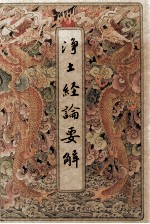 淨土经論要解